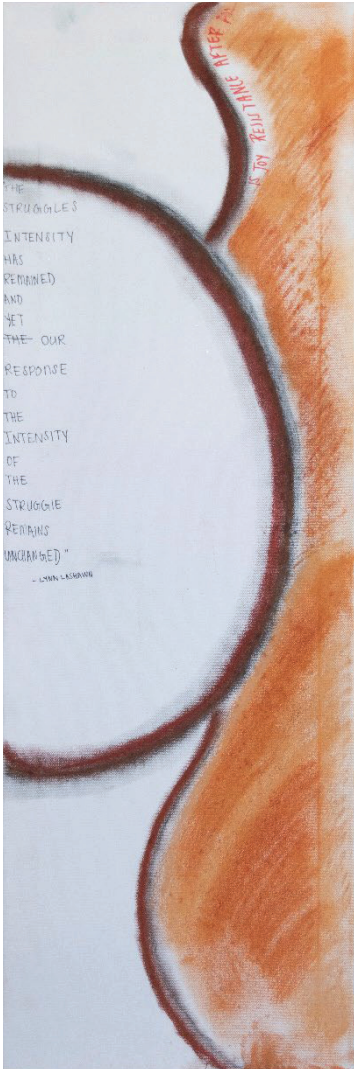 IS JOY RESISTANCE AFTER
THE
STRUGGLES
INTENSITY
HAS
REMAINED
AND
YET
THE OUR
RESPONSE
TO
THE
INTENSITY
OF
THE
STRUGGLE
REMAINS
UNCHANGED"
- LYNN LASHAWN